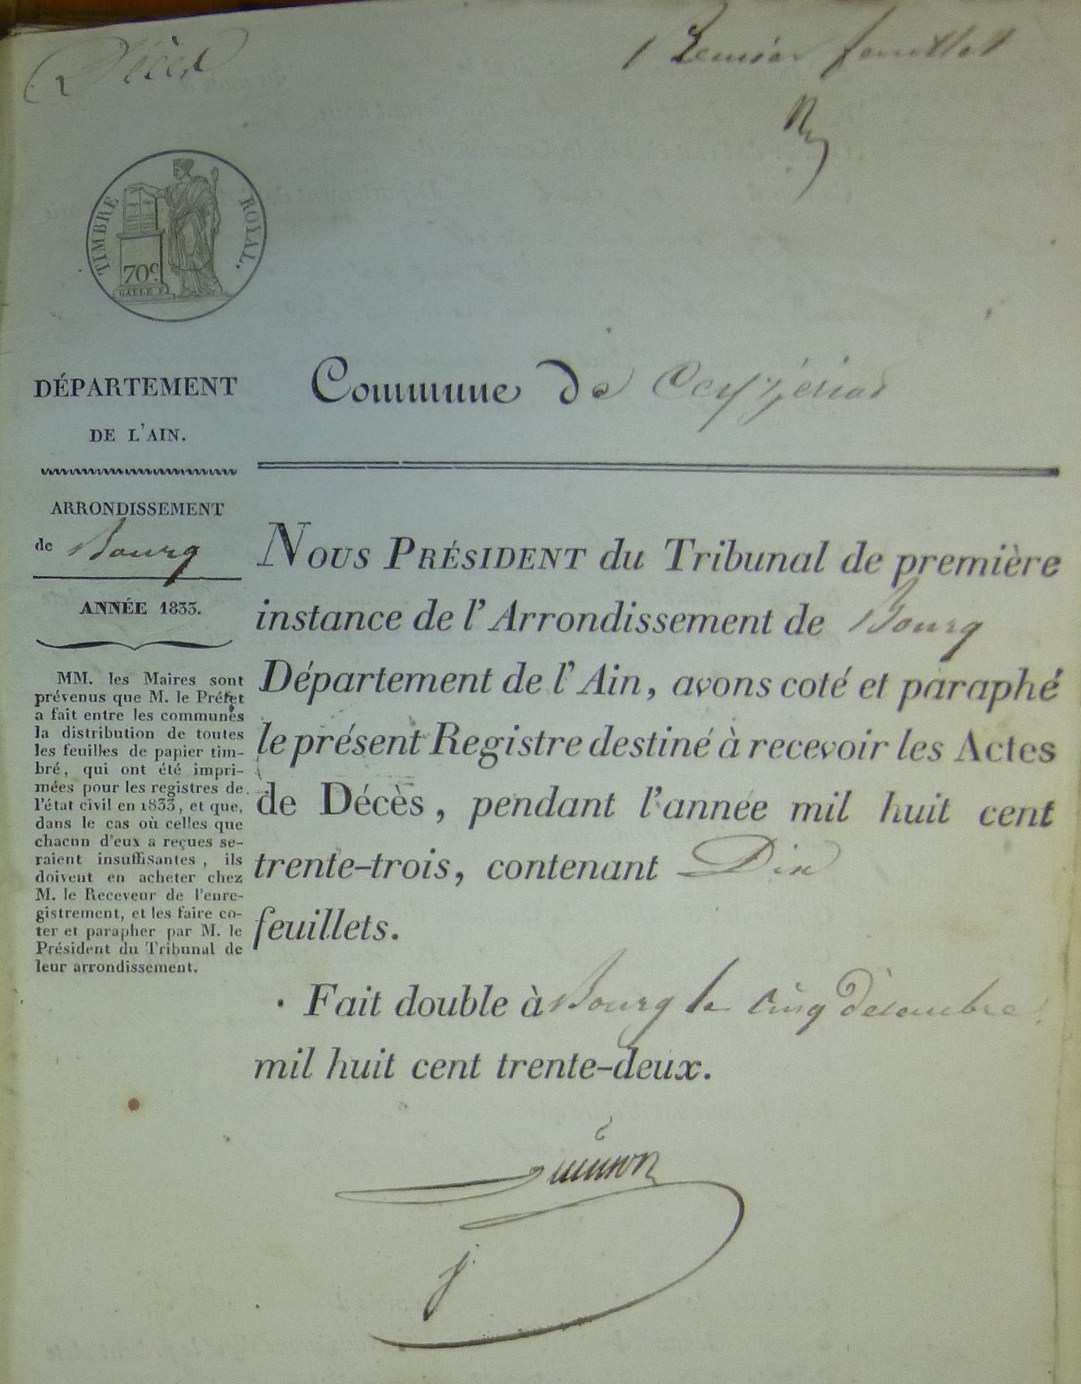 Décès
Premier feuillet
TIMBRE ROYAL.
70c
DÉPARTEMENT
DE L'AIN.
Commune de Ceyzériat
ARRONDISSEMENT
de Bourg
ANNÉE 1833.
MM. les Maires sont
prévenus que M. le Préfet
a fait entre les communes
la distribution de toutes
les feuilles de papier tim-
bré, qui ont été impri-
mées pour les registres de
l'état civil en 1833, et que,
dans le cas où celles que
chacun d'eux a reçues se-
raient insuffisantes, ils
doivent en acheter chez
M. le Receveur de l'enre-
gistrement, et les faire co-
ter et parapher par M. le
Président du Tribunal de
leur arrondissement.
NOUS PRÉSIDENT du Tribunal de première
instance de l'Arrondissement de Bourg
Département de l'Ain, avons coté et paraphé
le présent Registre destiné à recevoir les Actes
de Décès, pendant l'année mil huit cent
trente-trois, contenant Dix
feuillets.
Fait double à Bourg le cinq décembre
mil huit cent trente-deux.